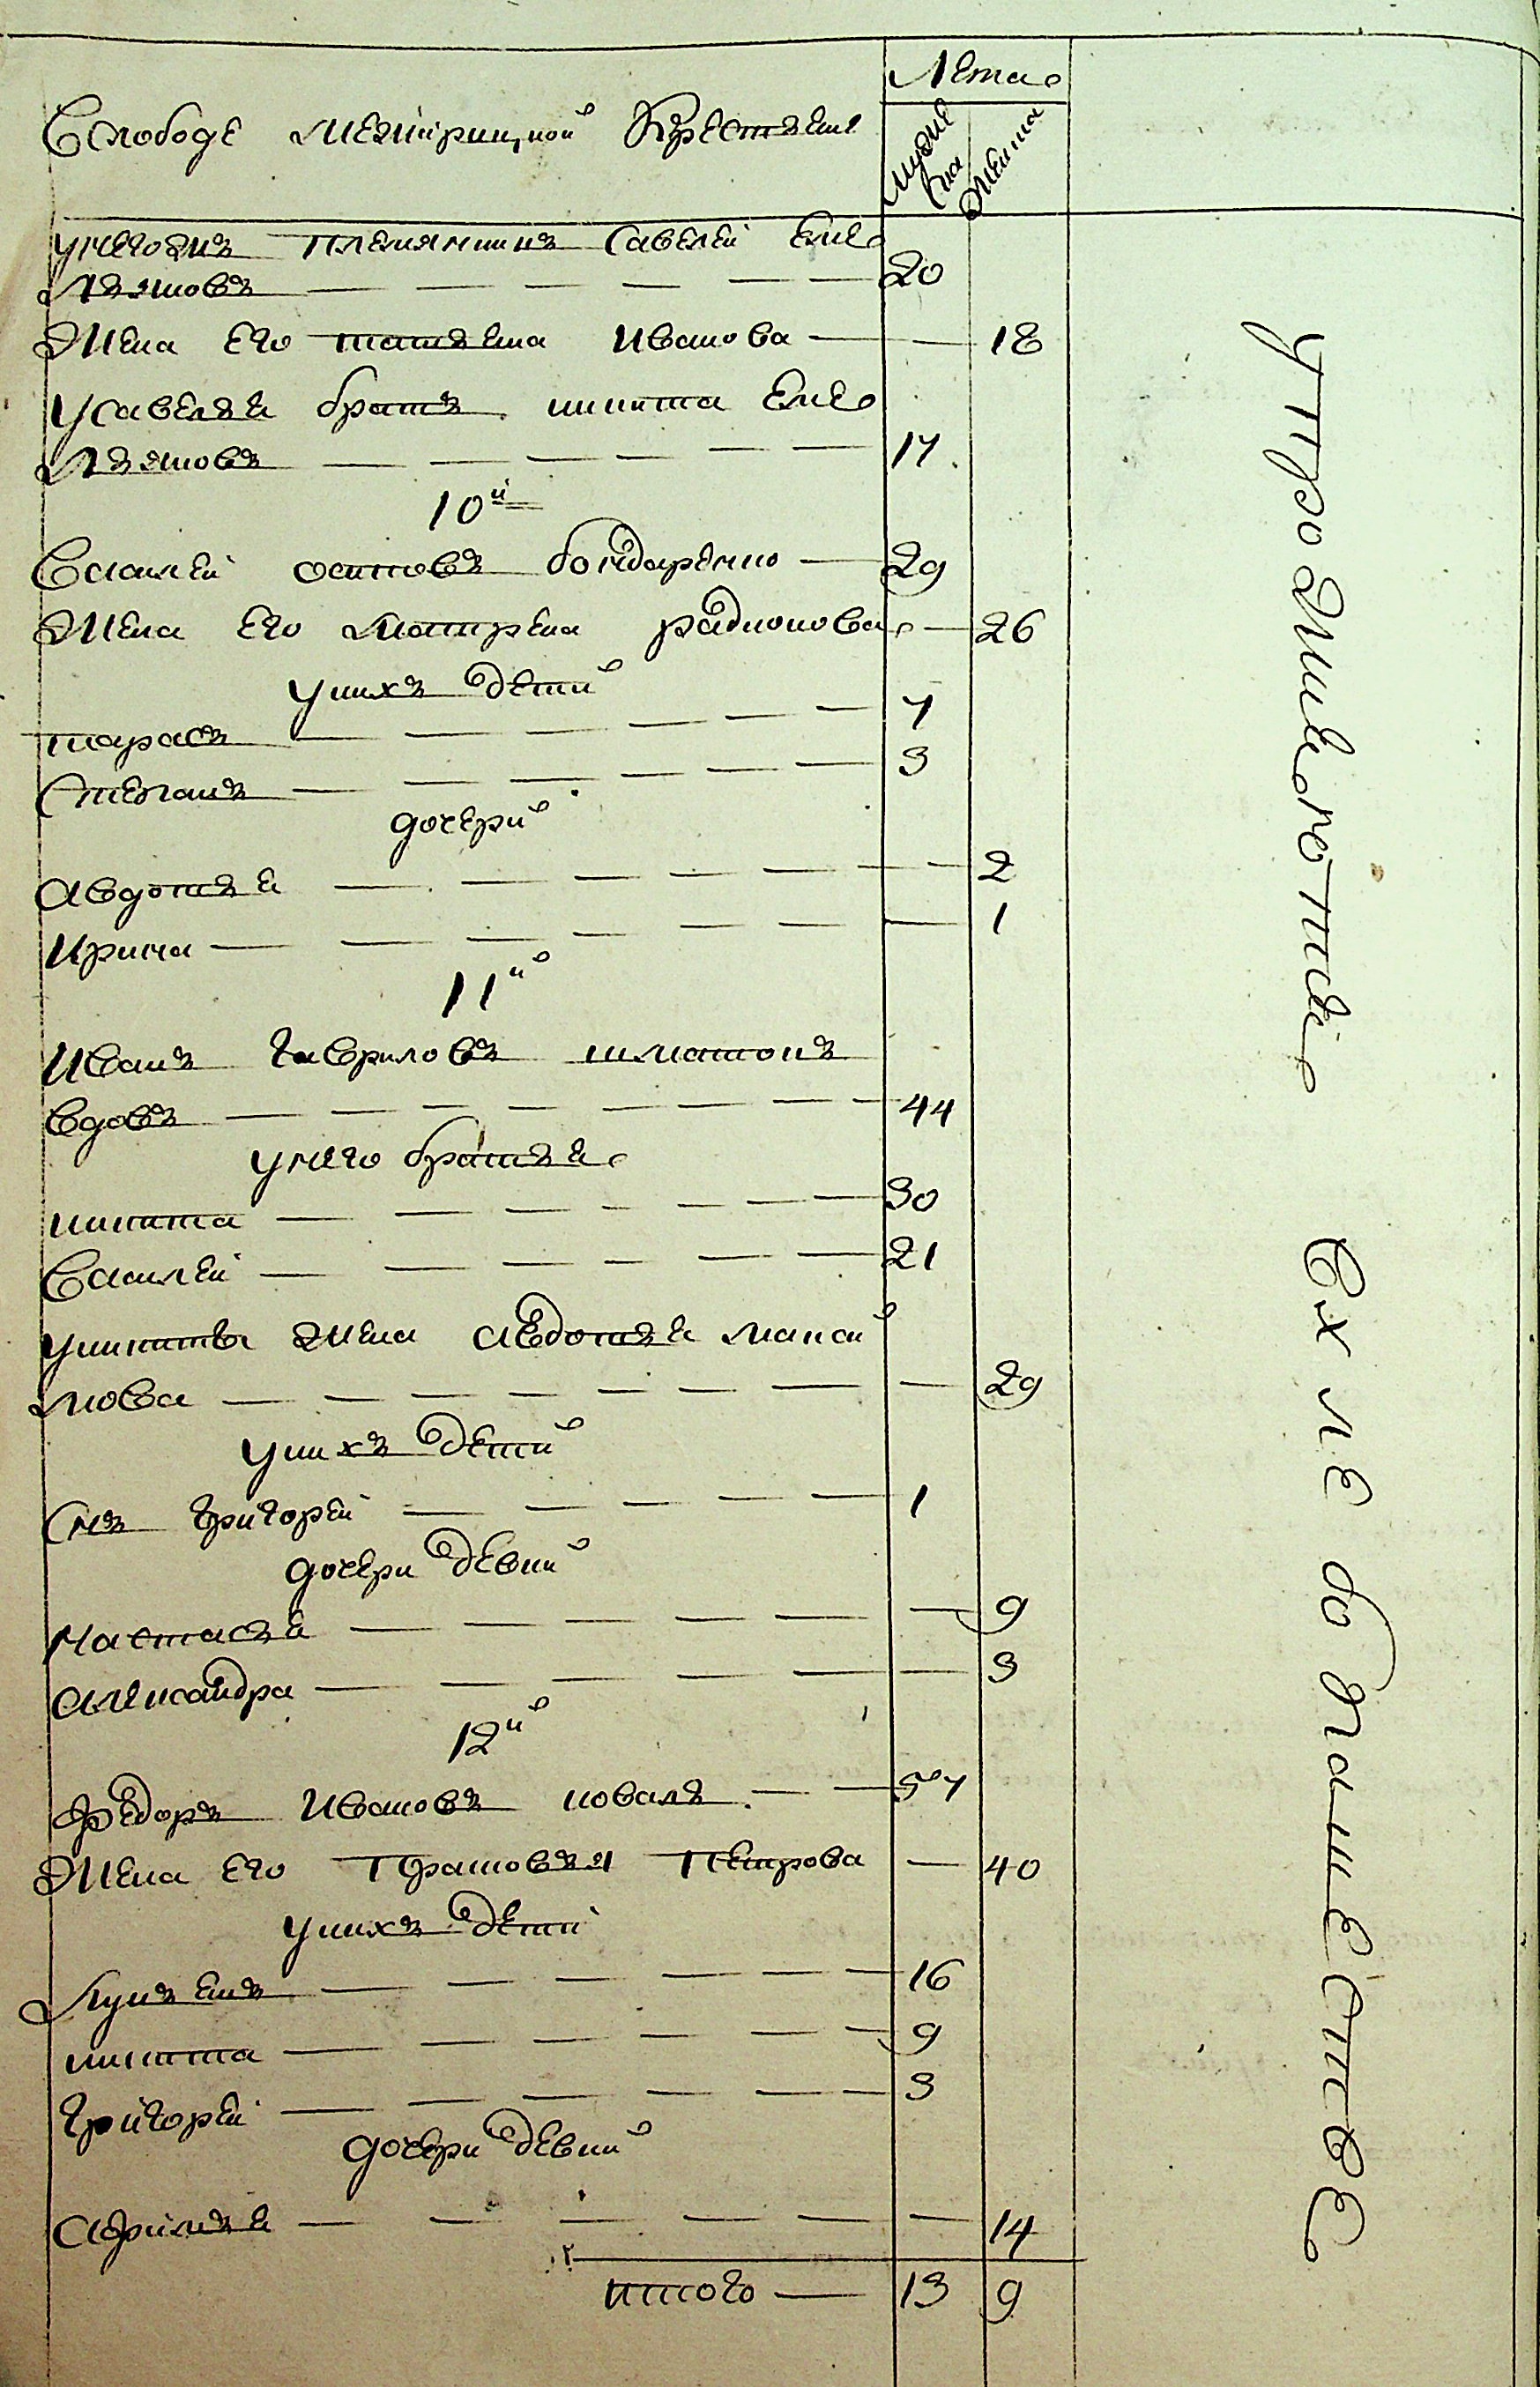 Лета
Вслободе межирицкой Крестяне
Мужеска
Женска
унегожъ племянникъ Савелей Еме
льяновъ — 20
Жена Его татьяна Иванова — 18
усавелья братъ никита Еме
льяновъ — 17
10й
Василей осиповъ бондаренко — 29
Жена Его мотрена радионова — 26
унихъ детей
тарасъ — 7
Степанъ — 3
дочери
авдотья — 2
Ирина — 1
11й
Иванъ гавриловъ шматокъ
вдовъ — 44
унего братья
никита — 30
Василей — 21
уникиты жена авдотья макси
мова — 29
унихъ детей
Снъ григорей — 1
дочери девки
Настасья — 9
александра — 3
12й
Федоръ Ивановъ коваль — 57
Жена Его Прасковья Петрова — 40
унихъ детей
Лукьянъ — 16
никита — 9
григорей — 3
дочери девки
— 14
итого — 13 9